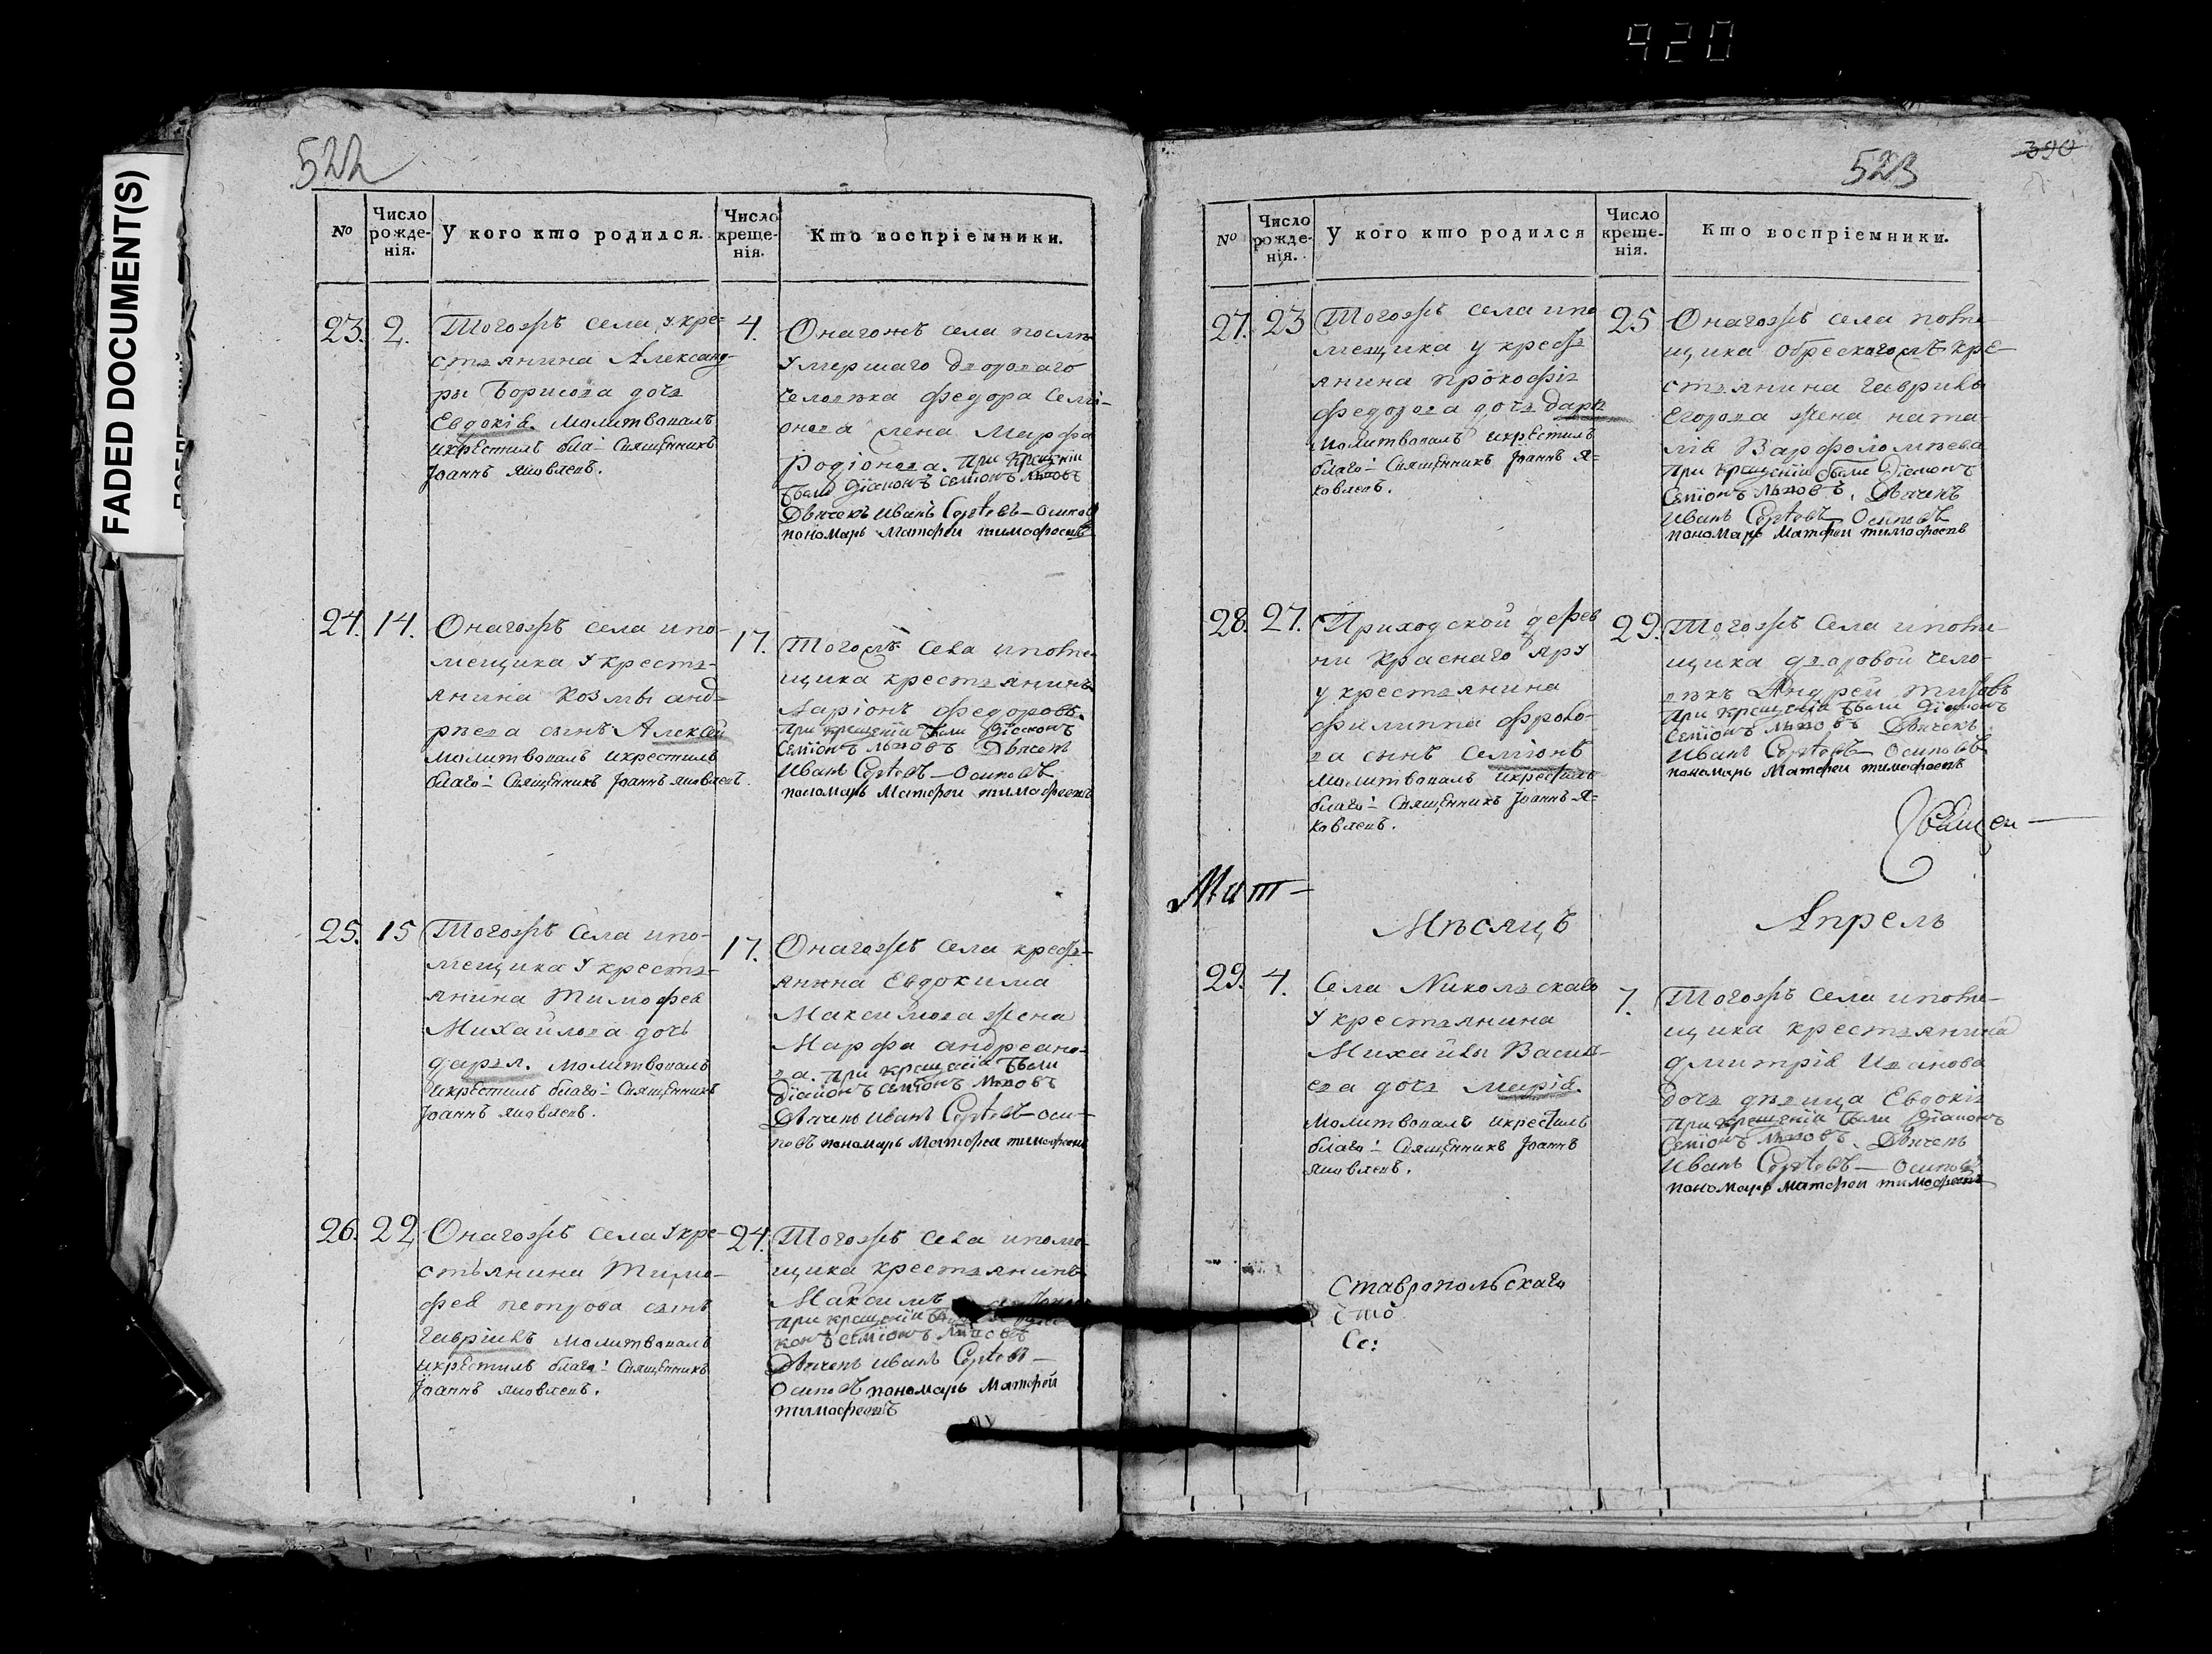 920
FADED DOCUMENT(S)
522
№ Число рожде-нія. У кого кто родился. Число креще-нія. Кто воспріемники.
23. 2. Тогожъ села укре-
стьянина Александ-
ры Борисова дочь
Евдокія. молитвовалъ
икрестилъ бла: Священникъ
Іоаннъ яковлевъ.
4. Онагожъ села посли
умершаго двороваго
человѣка федора Семі-
онова жена Марфа
Родіонова. при крещеніи
были діаконъ семіонъ
Дьячекъ иванъ Сергѣевъ Осиповъ
пономарь Матфей тимофеевъ
24. 14. Онагожъ села ипо-
мещика укресть-
янина козмы анд-
рѣева сынъ Алексѣй
молитвовалъ икрестилъ
благо: Священникъ Іоаннъ яковлевъ.
17. Тогожъ села ипоме-
щика крестьянинъ
Ларіонъ федоровъ.
при крещеніи были діаконъ
Семіонъ Дьячекъ
Иванъ Сергѣевъ Осиповъ
пономарь Матфеи тимофеевъ
25. 15 Тогожъ Села ипо-
мещика укресть-
янина Тимофея
Михайлова дочь
дарья. молитвовалъ
икрестилъ благо: Священникъ
Іоаннъ яковлевъ.
17. Онагожъ села кресть-
янина Евдокима
Максимова жена
Марфа андреано-
ва. при крещеніи были
діаконъ семіонъ
Дьячекъ иванъ Сергѣевъ оси-
повъ пономарь Матфеи тимофеевъ
26. 22 Онагожъ села укре-
стьянина Тимо-
фея петрова сынъ
Гавріилъ молитвовалъ
икрестилъ благо: Священникъ
Іоаннъ яковлевъ.
24. Тогожъ села ипоме-
щика крестьянинъ
Максимъ
при крещеніи были діа-
конъ семіонъ
Дьячекъ иванъ Сергѣевъ
Осиповъ пономарь Матфей
тимофеевъ
523
390
№ Число рожде-нія. У кого кто родился Число креще-нія. Кто воспріемники.
27. 23 Тогожъ села ипо
мещика у кресть
янина прокофія
федорова дочь дарья
молитвовалъ икрестилъ
благо: Священникъ Іоаннъ я-
ковлевъ.
25 Онагожъ села поме
щика кре-
стьянина гаврилы
Егорова жена ната
лія Варфоломѣева
при крещеніи были діаконъ
Семіонъ Дьячекъ
иванъ Сергѣевъ Осиповъ
пономарь Матфеи тимофеевъ
28. 27. Приходской дерев
ни Краснаго яру
у крестьянина
филиппа фроло-
ва сынъ Семіонъ
молитвовалъ икрестилъ
благо: Священникъ Іоаннъ я-
ковлевъ.
29. Тогожъ Села ипоме-
щика дворовой чело-
вѣкъ Андрей
при крещеніи были діаконъ
Семіонъ Дьячекъ
иванъ Сергѣевъ Осиповъ
пономарь Матфеи тимофеевъ
Священ
Мат
Мѣсяцъ Апрель
29. 4. Села Никольскаго
укрестьянина
Михайлы Василь-
ева дочь марія.
молитвовалъ икрестилъ
благо: Священникъ Іоаннъ
яковлевъ.
7. Тогожъ села ипоме-
щика крестьянина
дмитрія Иванова
дочь девица Евдокія
при крещеніи были діаконъ
Семіонъ Дьячекъ
иванъ Сергѣевъ Осиповъ
пономарь матфеи тимофеевъ
Ставропольскаго
Се: